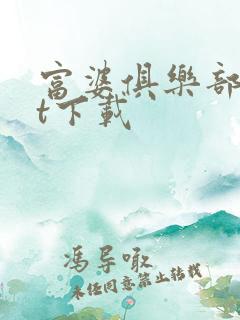 富婆俱樂部
t下載
馮导噉
未任同意禁止转载